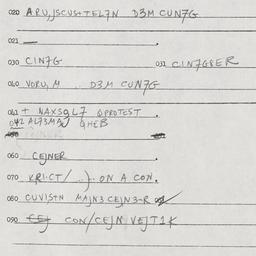 020 ARU,JSCUS+TEL7N D3M CUN7G
021 —
030 CIN7G 031 CIN7G8ER
040 VORU, M . D3M CUN7G
041 + NAXS9L7 QPROTEST
042 AL73MAJ QHEB
060 CEJNER
070 KRI.CT/ ..). ON A CON.
080 CUVISTN MAJN3 CEJN3-R
090 CON/CEJN VEJT1K